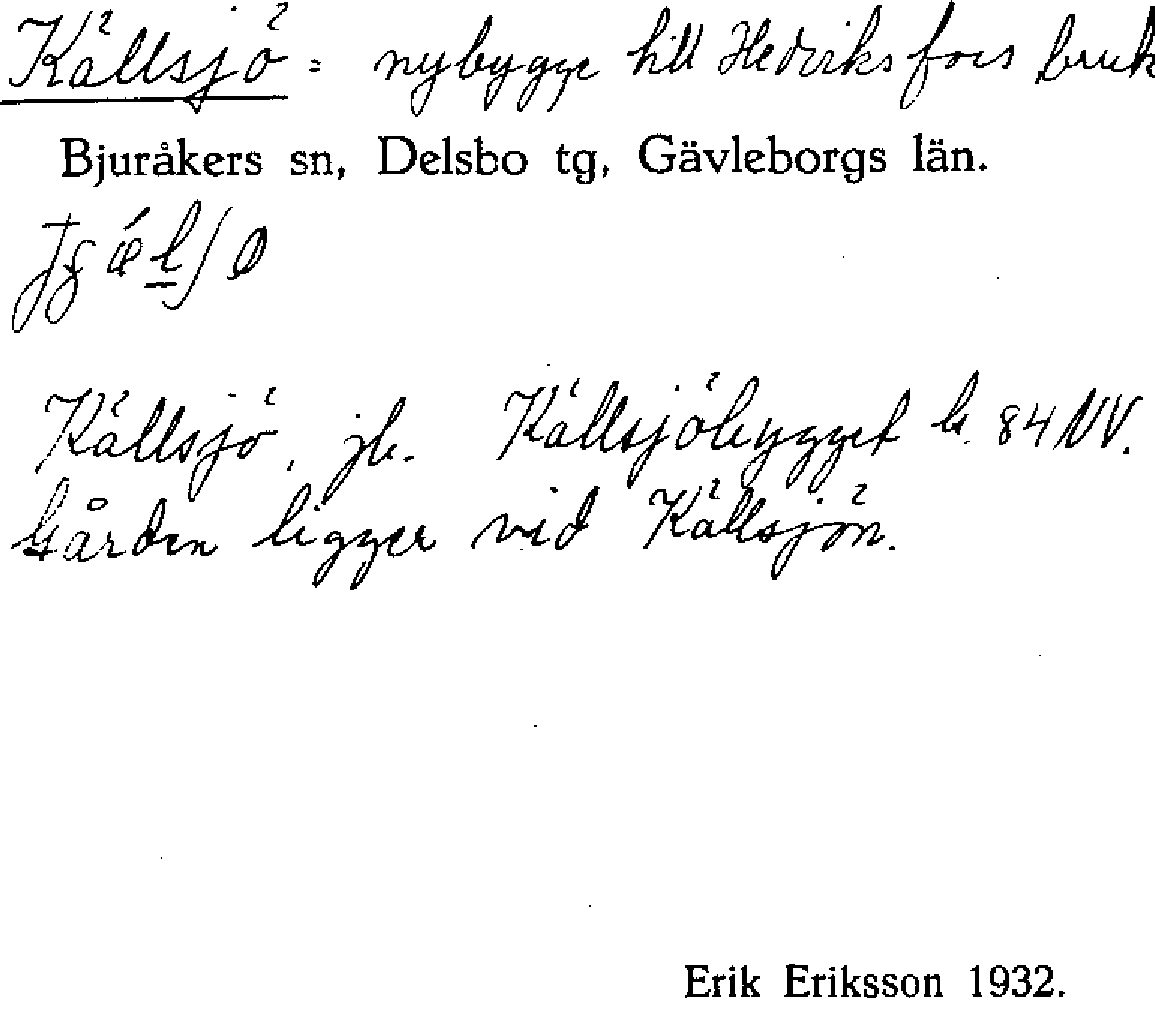 Källsjö = nybygge till Hedviksfors bruk
Bjuråkers sn, Delsbo tg, Gävleborgs län.
Källsjö, jb. Källsjöbygget b. 84 NV.
Gården ligger vid Källsjön.
Erik Eriksson 1932.